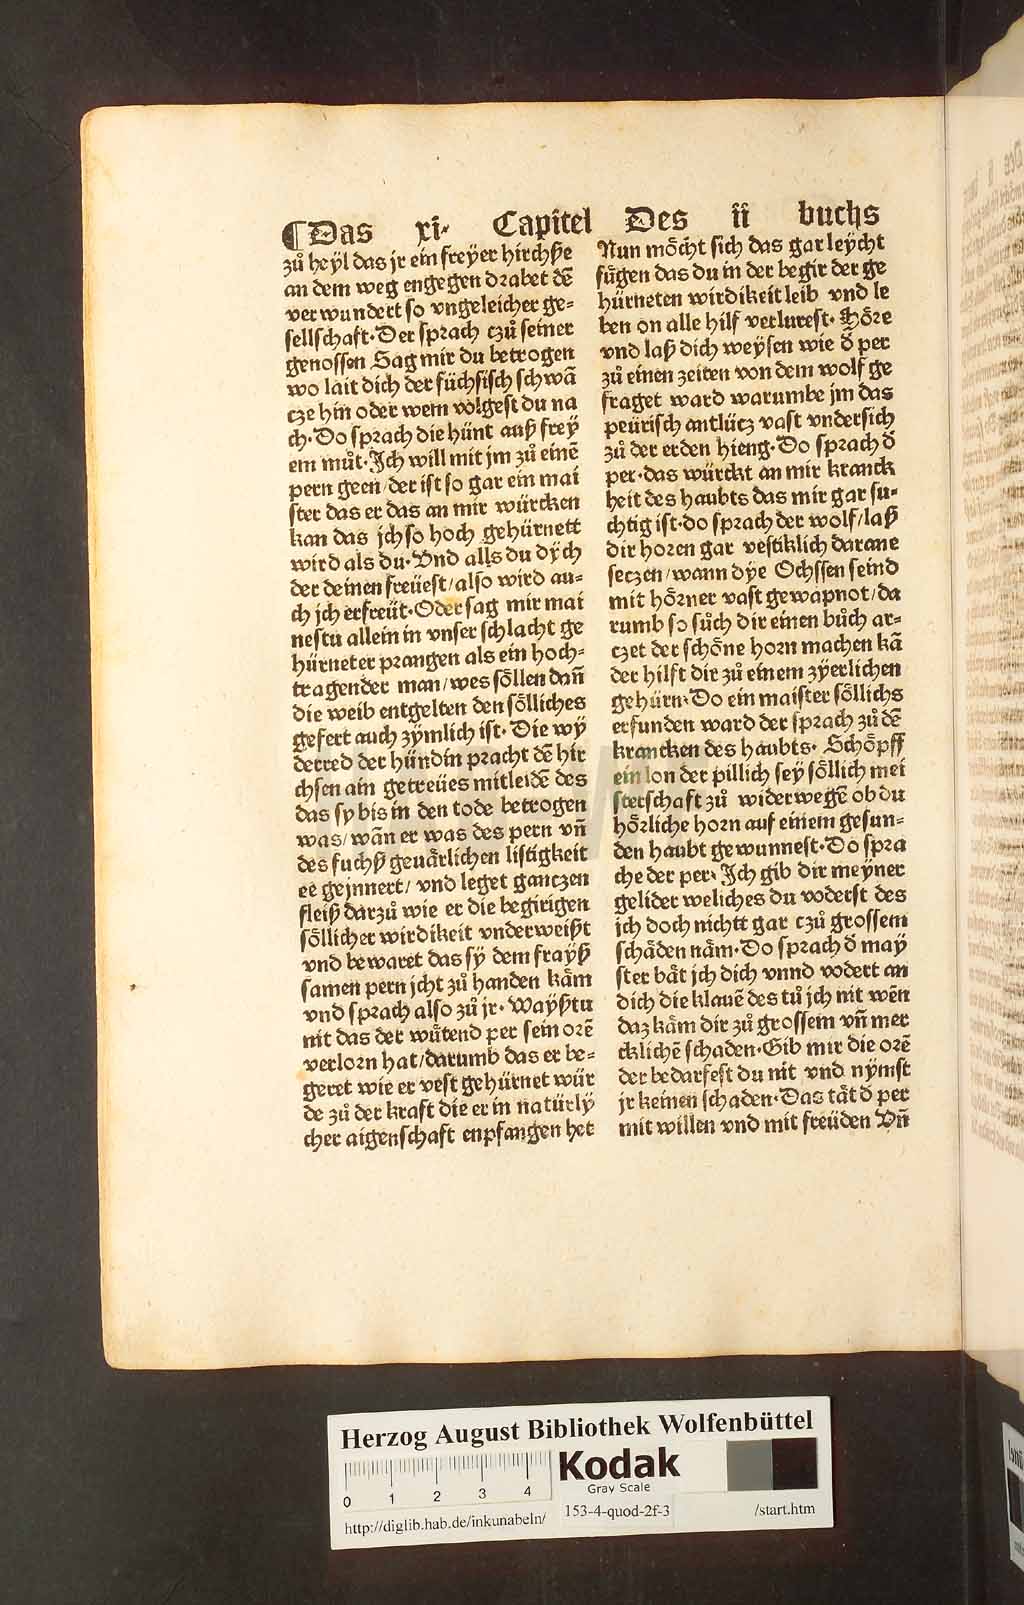 ¶Das xi· Capitel Des ii buchs
zů heÿl das jr ein freÿer hirchße
an dem weg engegen drabet dē
verwundert so vngeleicher ge⸗
sellschaft·Der sprach czů seiner
genossen Sag mir du betrogen
wo lait dich der füchsisch schwā
cze hin oder wem volgest du na
ch·Do sprach die hünt auß freÿ
em můt·Jch will mit jm zů einē
pern geen/der ist so gar ein mai
ster das er das an mir würcken
kan das jch so hoch gehürnett
wird als du·Vnd alls du dÿch
der deinen freüest/also wird au⸗
ch jch erfreüt·Oder sag mir mai
nestu allein in vnser schlacht ge
hürneter prangen als ein hoch⸗
tragender man/wes söllen dañ
die weib entgelten den sölliches
gefert auch zÿmlich ist·Die wÿ
derred der hündin pracht dē hir
chsen ain getreües mitleidē des
das sy bis in den tode betrogen
was/wān er was des pern vñ
des fuchß geuärlichen listigkeit
ee gejnnert/ vnd leget ganczen
fleiß darzů wie er die begirigen
söllicher wirdikeit vnderweißt
vnd bewaret das sÿ dem fraÿß
samen pern jcht zů handen käm
vnd sprach also zů jr·Waÿßtu
nit das der wůtend per sein orē
verlorn hat/darumb das er be⸗
geret wie er vest gehürnet wür
de zů der kraft die er in natürlÿ
cher aigenschaft enpfangen het
Nun möcht sich das gar leÿcht
fůgen das du in der begir der ge
hürneten wirdikeit leib vnd le
ben on alle hilf verlurest·Höre
vnd laß dich weÿsen wie d̄ per
zů einen zeiten von dem wolf ge
fraget ward warumbe jm das
peürisch antlücz vast vndersich
zů der erden hieng·Do sprach d̄
per·das würckt an mir kranck
heit des haubts das mir gar su⸗
chtig ist·do sprach der wolf/laß
dir horen gar vestiklich darane
seczen/wann dÿe Ochssen seind
mit hörner vast gewapnot/da
rumb so sůch dir einen bůch ar⸗
czet der schöne horn machen kā
der hilft dir zů einem zÿerlichen
gehürn·Do ein maister söllichs
erfunden ward der sprach zů dē
krancken des haubts· Schöpff
ein lon der pillich seÿ söllich mei
sterschaft zů widerwegē ob du
hörliche horn auf einem gesun⸗
den haubt gewunnest·Do spra
che der per·Jch gib dir meÿner
gelider weliches du voderst des
jch doch nichtt gar czů grossem
schäden näm·Do sprach d̄ maÿ
ster bät jch dich vnnd vodert an
dich die klauē des tů jch nit wēn
daz käm dir zů grossem vñ mer
cklichē schaden·Gib mir die orē
der bedarfest du nit vnd nÿmst
jr keinen schaden·Das tät d̄ per
mit willen vnd mit freüden Vñ
Herzog August Bibliothek Wolfenbüttel
Kodak
Gray Scale
0 1 2 3 4
http://diglib.hab.de/inkunabeln/ 153-4-quod-2f-3 /start.htm